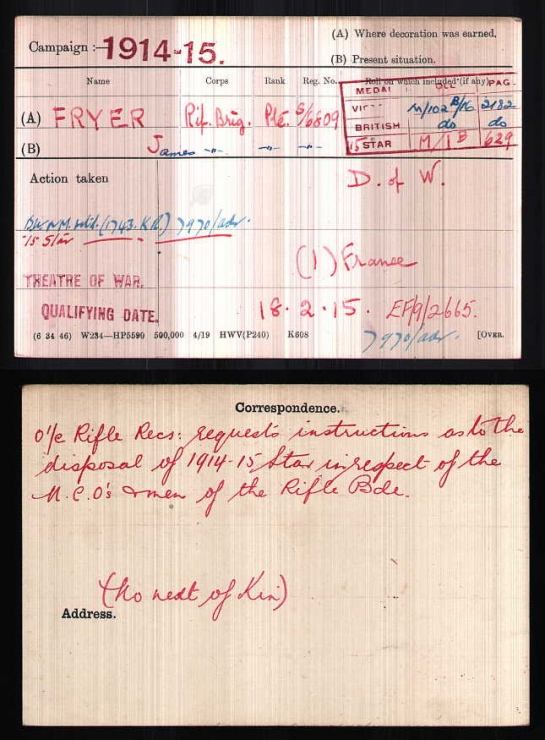 (A) Where decoration was earned.
Campaign :— 1914-15.
(B) Present situation.
Name Corps Rank Reg. No. Roll on which included (if any)
MEDAL PAG
(A) FRYER Rif. Brig. Pte. S/6809
M/102 B/16 2182
BRITISH do do
(B) James -"- -"- -"-
15 STAR M/1 B 629
Action taken
D. of W.
(1743. K.R.) 7970/adv.
'15 Star
(1) France
THEATRE OF WAR.
QUALIFYING DATE. 18.2.15. EF/9/2665.
7970/adv.
(6 34 46) W234—HP5590 500,000 4/19 HWV(P240) K608 [OVER.
Correspondence.
O i/c Rifle Recs: requests instructions as to the
disposal of 1914-15 Star in respect of the
N.C.O's & men of the Rifle Bde.
(No next of Kin)
Address.